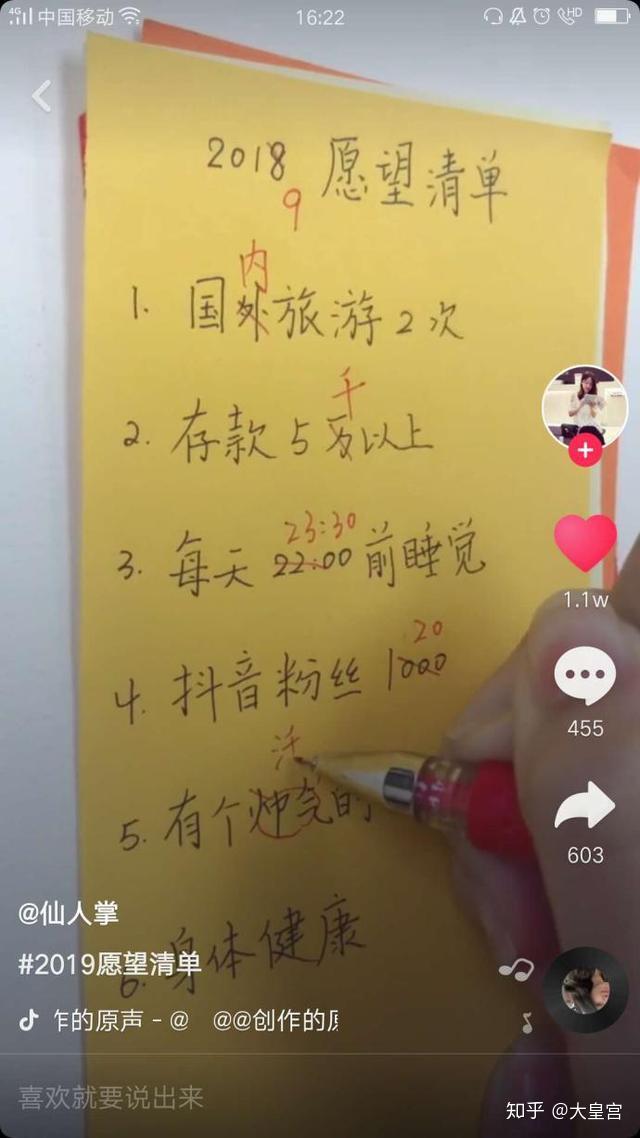 4G 中国移动 16:22 HD
2018 愿望清单
9
内
1. 国外旅游2次
千
2. 存款5万以上
23:30
3. 每天22:00前睡觉
20
4. 抖音粉丝1000
活
5. 有个帅气的
6. 身体健康
1.1w
455
603
@仙人掌
#2019愿望清单
乍的原声 - @ @@创作的原
喜欢就要说出来
知乎 @大皇宫